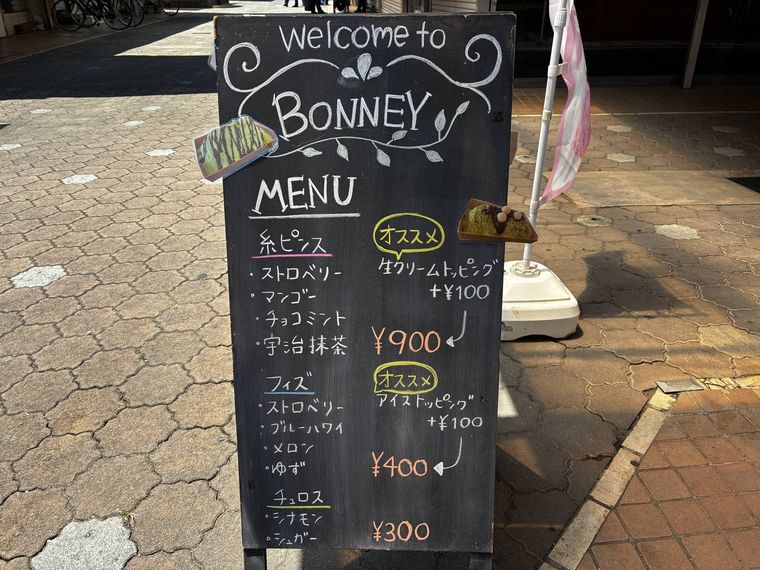 Welcome to
BONNEY
MENU
糸ピンス
・ストロベリー
・マンゴー
・チョコミント
・宇治抹茶
オススメ
生クリームトッピング
+¥100
¥900
フィズ
・ストロベリー
・ブルーハワイ
・メロン
・ゆず
オススメ
アイストッピング
+¥100
¥400
チュロス
・シナモン
・シュガー
¥300